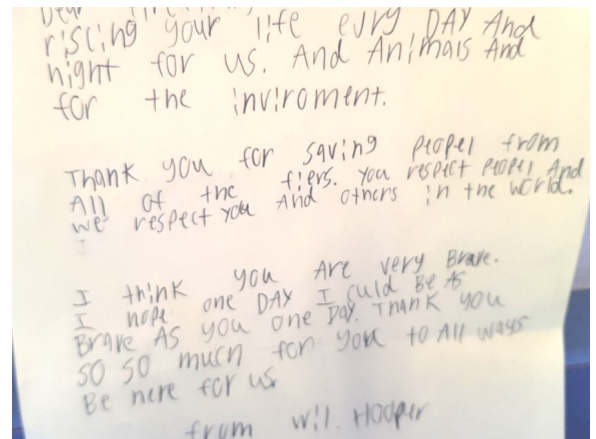 Dear
riscing your life evry DAY And
night for us. And Animals And
for the inviroment.
Thank you for saving peopel from
All of the fiers. you respect peopel And
we respect you And others in the world.
I think you Are very Brave.
I hope one DAY I culd Be As
Brave As you one Day. Thank you
so so much for you to All ways
Be here for us
from Will Hooper